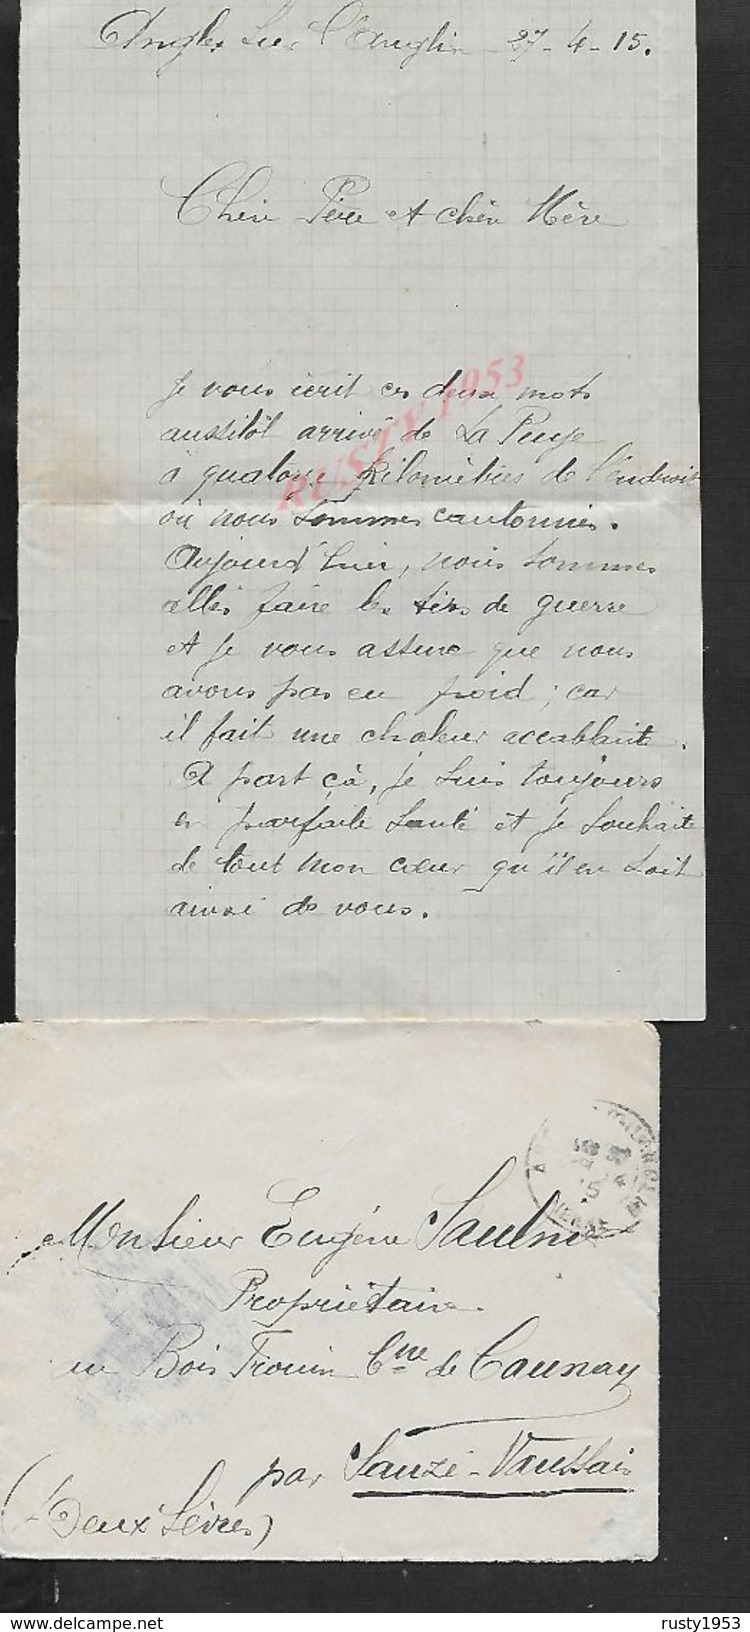 Angles sur l'Anglin 27-4-15.
Cher Père et chèr Mère
Je vous écrit ces deux mots
aussitôt arrivé de La Puye
à quatorze kilomètres de l'endroit
où nous sommes cantonnés.
Aujourd'huie, nous sommes
allés faire les tirs de guerre
et je vous assure que nous
avons pas eu froid ; car
il fait une chaleur accablante.
A part çà, je suis toujours
en parfaite santé et je souhaite
de tout mon cœur qu'il en soit
ainsi de vous.
RUSTY 1953
Monsieur Eugène Saulnier
Propriétaire
au Bois Trouin Cne de Caunay
par Sauzé-Vaussais
(Deux Sèvres)
rusty1953